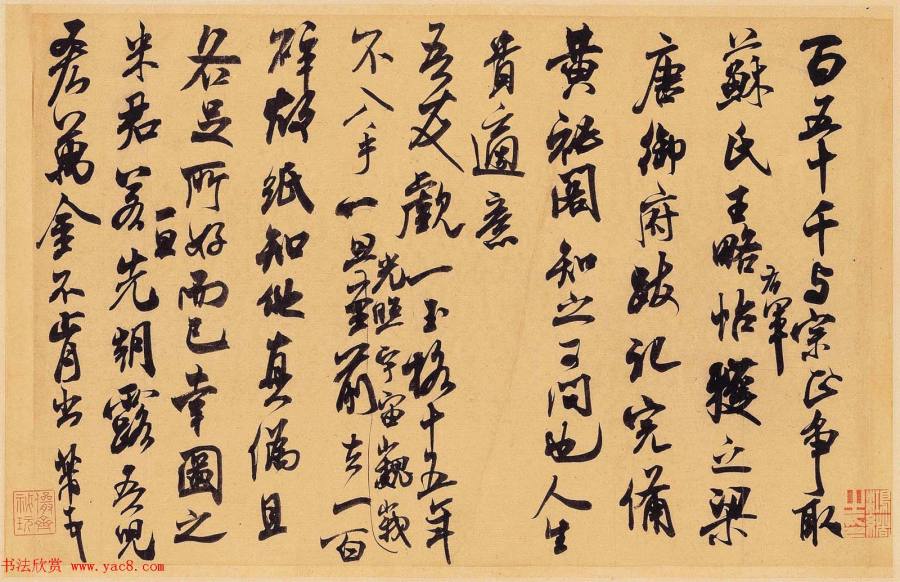 百五十千与宗正争取
蘇氏王略帖右軍獲之梁
唐御府跋記完備
黃秘閣知之可問也人生
貴適意
吾友覷一玉格十五年
不入手一旦光照宇宙巍峩至前去一百
碎故紙知他真偽且
各足所好而已幸圖之
米君若一旦先朝露吾兒
吝萬金不肯出芾頓首
书法欣赏 www.yac8.com